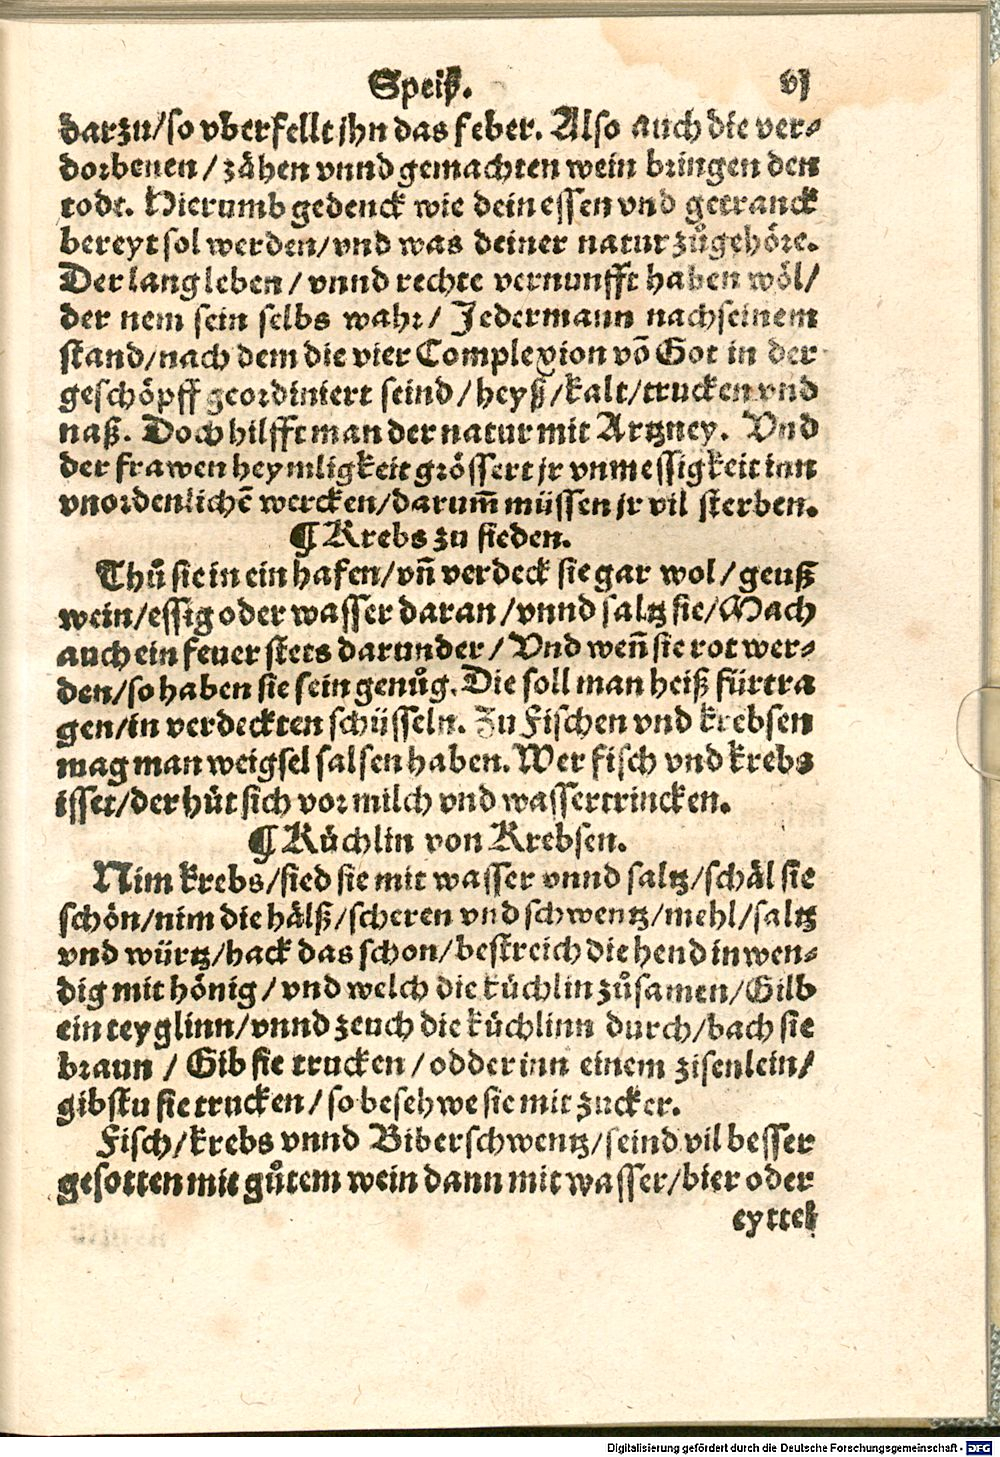 Speiß. vj
darzu/so vberfellt jhn das feber. Also auch die ver-
dorbenen / zähen vnnd gemachten wein bringen den
todt. Hierumb gedenck wie dein essen vnd getranck
bereyt sol werden/vnd was deiner natur zůgehöre.
Der lang leben / vnnd rechte vernunfft haben wöl/
der nem sein selbs wahr/ Jederman̄n nach seinem
stand/nach dem die vier Complexion võ Got in der
geschöpff geordiniert seind/heyß/kalt/trucken vnd
naß. Doch hilfft man der natur mit Artzney. Vnd
der frawen heymligkeit grössert jr vnmessigkeit inn
vnordenlichē wercken/darum̄ müssen jr vil sterben.
¶ Krebs zu sieden.
Thů sie in ein hafen/vn̄ verdeck sie gar wol/geuß
wein/essig oder wasser daran/vnnd saltz sie/Mach
auch ein feuer stets darunder/ Vnd wen̄ sie rot wer-
den/so haben sie sein genůg. Die soll man heiß fürtra
gen/in verdeckten schüsseln. Zu Fischen vnd krebsen
mag man weigsel salsen haben. Wer fisch vnd krebs
isset/der hüt sich vor milch vnd wassertrincken.
¶ Küchlin von Krebsen.
Nim krebs/sied sie mit wasser vnnd saltz/schäl sie
schön/nim die hälß/scheren vnd schwentz/mehl/saltz
vnd würtz/hack das schon/bestreich die hend inwen-
dig mit hönig/vnd welch die küchlin zůsamen/Gilb
ein teyglinn/vnnd zeuch die küchlinn durch/bach sie
braun / Gib sie trucken/odder inn einem zisenlein/
gibstu sie trucken/so besehwe sie mit zucker.
Fisch/krebs vnnd Biberschwentz/seind vil besser
gesotten mit gůtem wein dann mit wasser/bier oder
eyttel
Digitalisierung gefördert durch die Deutsche Forschungsgemeinschaft - DFG